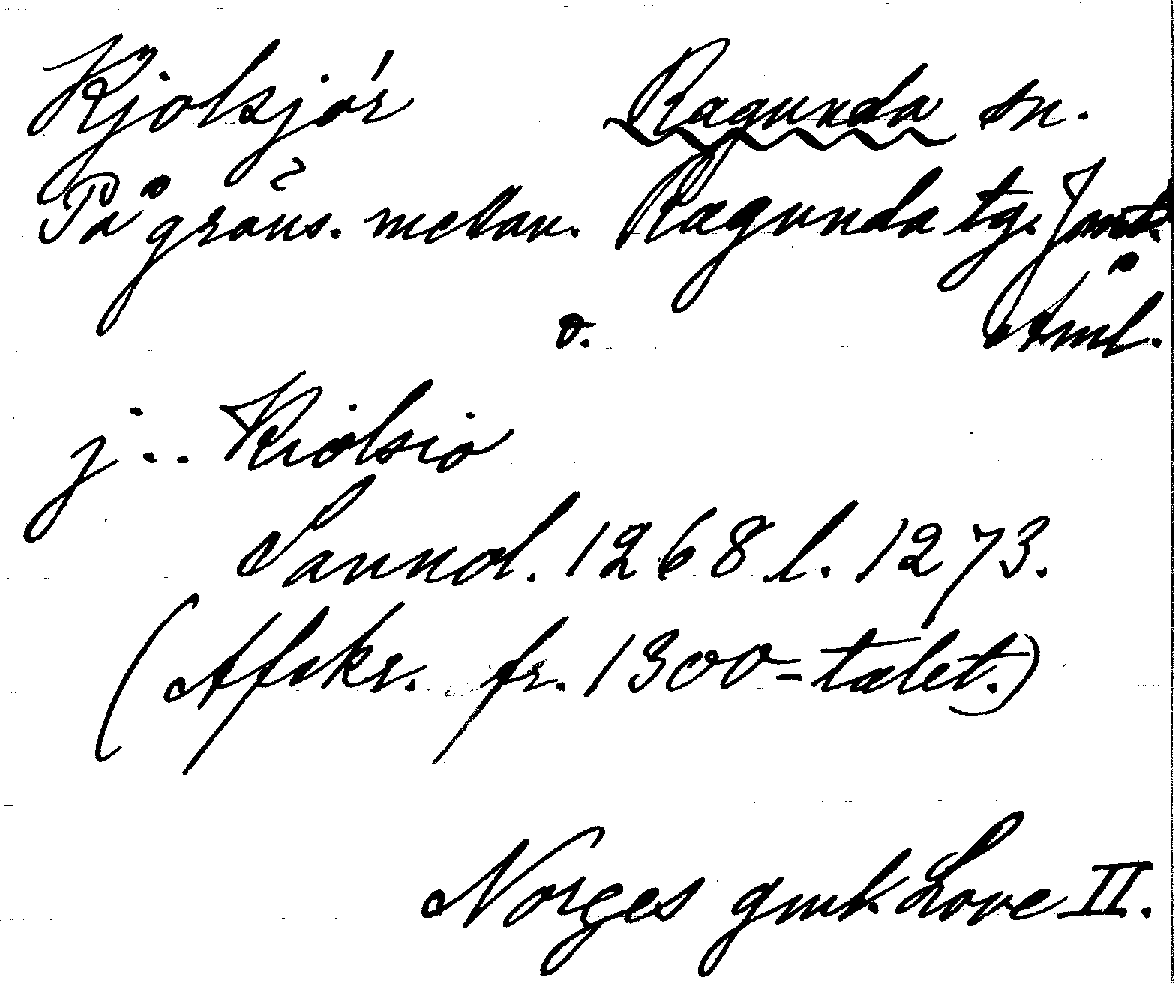 Kjolsjór Ragunda sn.
På gräns. mellan. Ragunda tg. Jämt.
o. Åml.
j... Kiolsio
Sannol. 1268 l. 1273.
(Afskr. fr. 1300-talet.)
Norges gmk Love II.